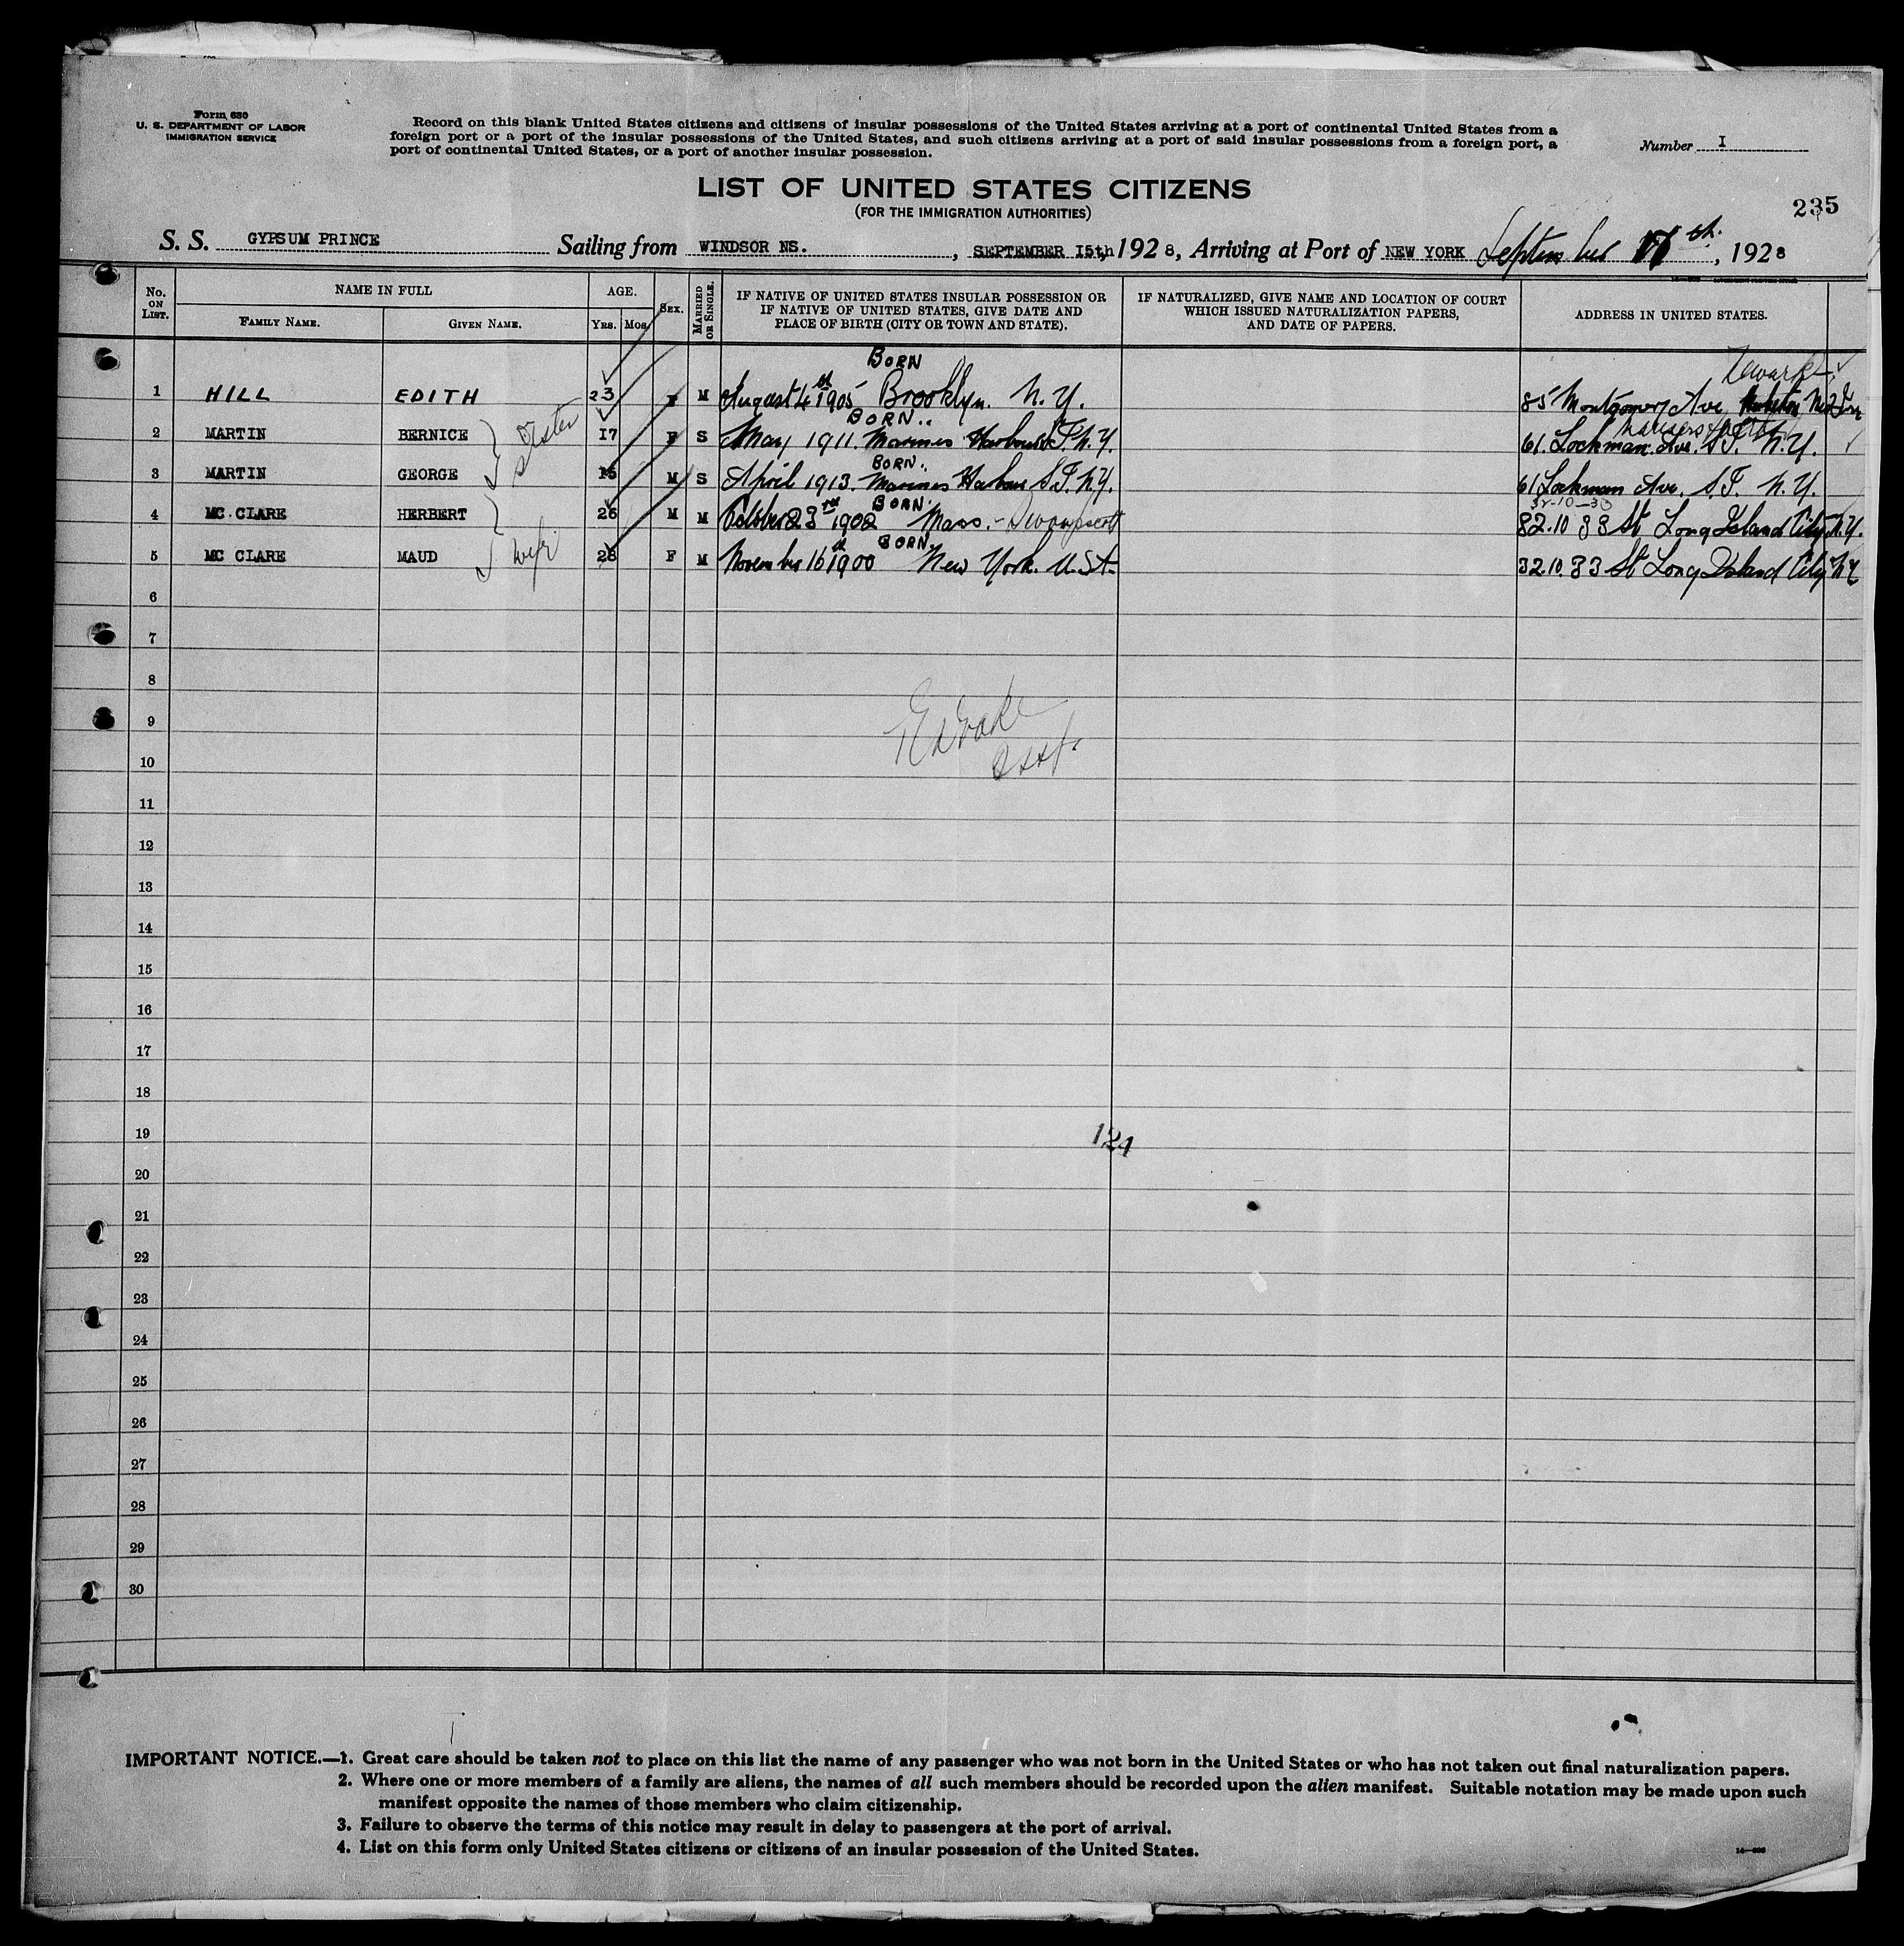 Form 630
U. S. DEPARTMENT OF LABOR
IMMIGRATION SERVICE
Record on this blank United States citizens and citizens of insular possessions of the United States arriving at a port of continental United States from a
foreign port or a port of the insular possessions of the United States, and such citizens arriving at a port of said insular possessions from a foreign port, a
port of continental United States, or a port of another insular possession.
Number I
LIST OF UNITED STATES CITIZENS
(FOR THE IMMIGRATION AUTHORITIES)
235
S. S. GYPSUM PRINCE Sailing from WINDSOR NS. , SEPTEMBER 15th, 1928, Arriving at Port of NEW YORK September 17th. , 1928
No. ON LIST. NAME IN FULL FAMILY NAME. GIVEN NAME. AGE. YRS. MOS. SEX. MARRIED OR SINGLE. IF NATIVE OF UNITED STATES INSULAR POSSESSION OR IF NATIVE OF UNITED STATES, GIVE DATE AND PLACE OF BIRTH (CITY OR TOWN AND STATE). IF NATURALIZED, GIVE NAME AND LOCATION OF COURT WHICH ISSUED NATURALIZATION PAPERS, AND DATE OF PAPERS. ADDRESS IN UNITED STATES.
BORN Newark
1 HILL EDITH 23 F M August 4th 1905 Brooklyn. N.Y. 85 Montgomery Ave
BORN..
2 MARTIN BERNICE sister 17 F S May 1911. Mariners Harbour S.I. N.Y. 61. Lockman Ave. S.I. N.Y.
BORN..
3 MARTIN GEORGE 15 M S April 1913. Mariners Harbour S.I. N.Y. 61 Lockman Ave. S.I. N.Y.
BORN. 32-10-33
4 MC.CLARE HERBERT 26 M M October 23rd 1902 Mass. - Swampscott 32.10 33 St Long Island City N.Y.
BORN.
5 MC CLARE MAUD wife 28 F M November 16th 1900 New York. U.S.A. 32.10. 33 St Long Island City N.Y
6
7
8
9
10
11
12
13
14
15
16
17
18
19
124
20
21
22
23
24
25
26
27
28
29
30
IMPORTANT NOTICE.—1. Great care should be taken not to place on this list the name of any passenger who was not born in the United States or who has not taken out final naturalization papers.
2. Where one or more members of a family are aliens, the names of all such members should be recorded upon the alien manifest. Suitable notation may be made upon such
manifest opposite the names of those members who claim citizenship.
3. Failure to observe the terms of this notice may result in delay to passengers at the port of arrival.
4. List on this form only United States citizens or citizens of an insular possession of the United States.